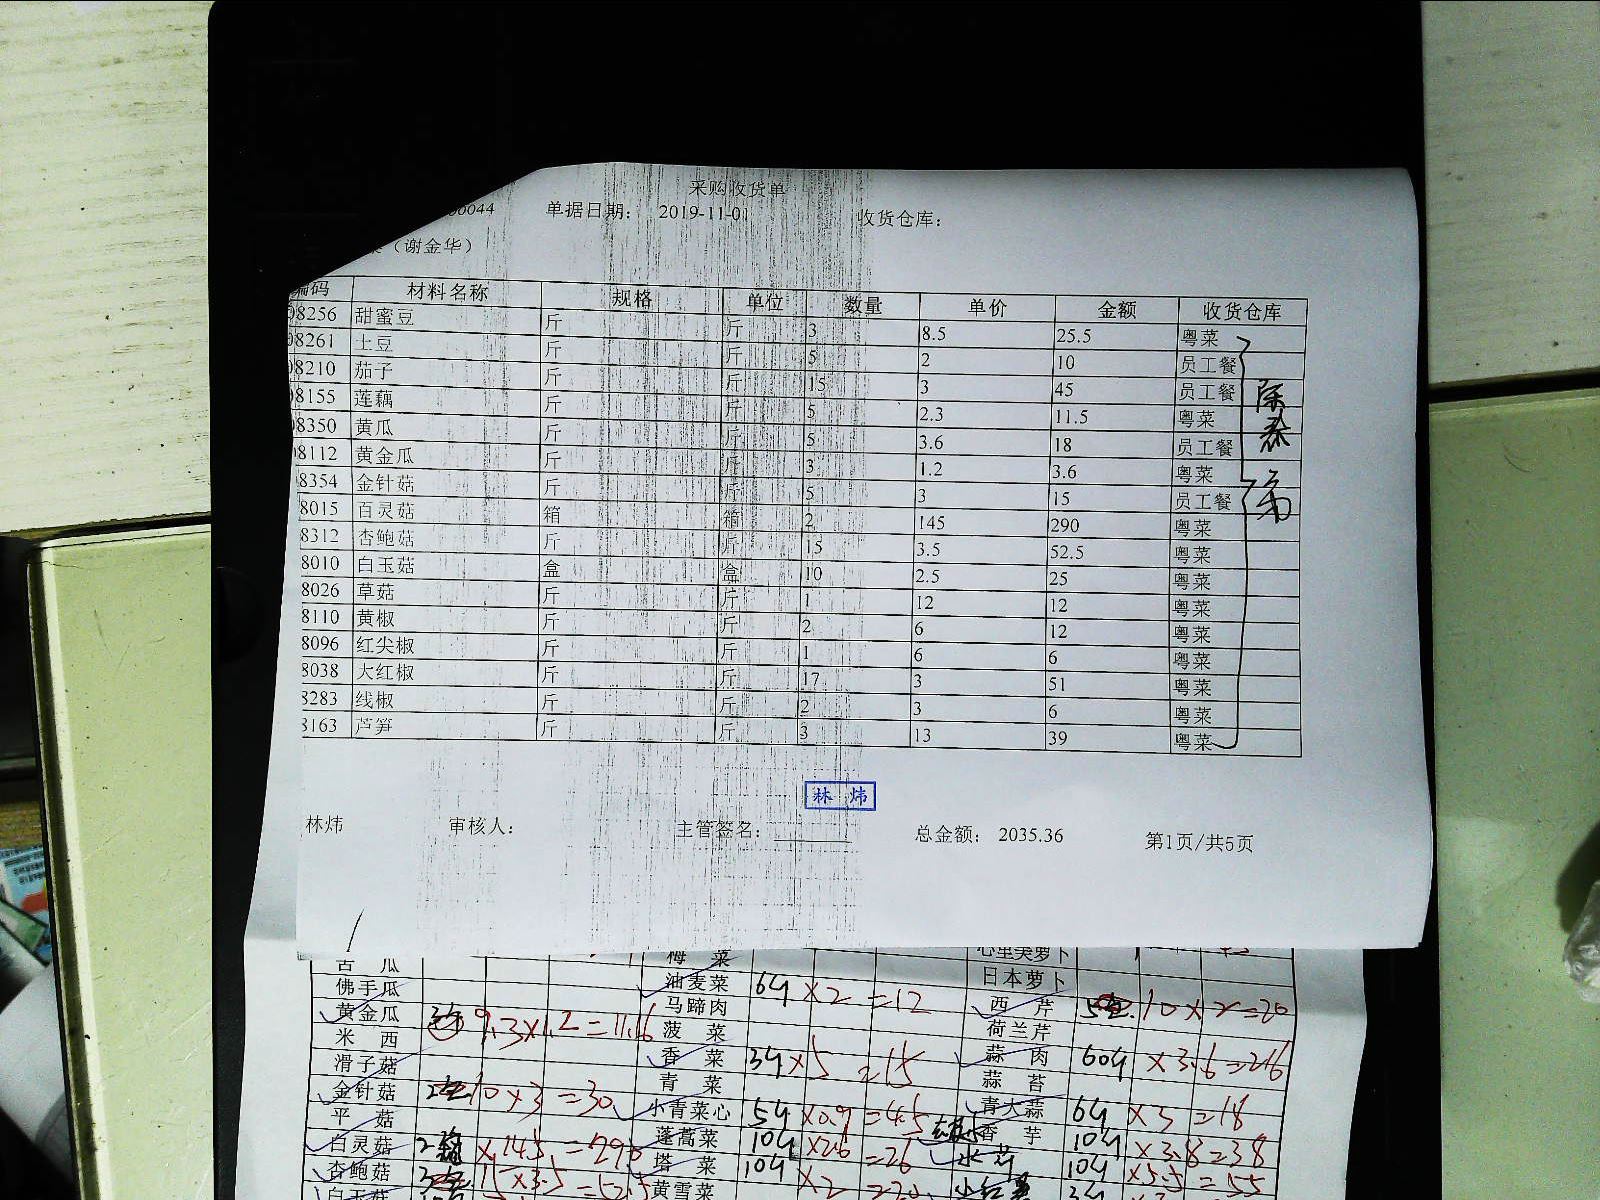 采购收货单
00044 单据日期: 2019-11-01 收货仓库:
(谢金华)
编码 材料名称 规格 单位 数量 单价 金额 收货仓库
08256 甜蜜豆 斤 斤 3 8.5 25.5 粤菜
08261 土豆 斤 斤 5 2 10 员工餐
08210 茄子 斤 斤 15 3 45 员工餐
08155 莲藕 斤 斤 5 2.3 11.5 粤菜
08350 黄瓜 斤 斤 5 3.6 18 员工餐
08112 黄金瓜 斤 斤 3 1.2 3.6 粤菜
8354 金针菇 斤 斤 5 3 15 员工餐
8015 百灵菇 箱 箱 2 145 290 粤菜
8312 杏鲍菇 斤 斤 15 3.5 52.5 粤菜
8010 白玉菇 盒 盒 10 2.5 25 粤菜
8026 草菇 斤 斤 1 12 12 粤菜
8110 黄椒 斤 斤 2 6 12 粤菜
8096 红尖椒 斤 斤 1 6 6 粤菜
8038 大红椒 斤 斤 17 3 51 粤菜
8283 线椒 斤 斤 2 3 6 粤菜
8163 芦笋 斤 斤 3 13 39 粤菜
林炜
林炜 审核人: 主管签名: 总金额: 2035.36 第1页/共5页
苦瓜 梅菜 心里美萝卜
佛手瓜 油麦菜 6斤 ×2 =12 日本萝卜
黄金瓜 9.3×1.2=11.16 马蹄肉 西芹 10×2=20
米西 菠菜 荷兰芹
滑子菇 香菜 3斤 ×5 =15 蒜肉 60斤 ×3.6=216
金针菇 10×3=30 青菜 蒜苔
平菇 小青菜心 5斤 ×0.9=4.5 青大蒜 6斤 ×3=18
白灵菇 2箱 ×145=290 蓬蒿菜 10斤 ×2.6=26 香芋 10斤 ×3.8=38
杏鲍菇 15×3.5=52.5 塔菜 10斤 ×2=20 10斤 ×5.5=55
白玉菇 黄雪菜 3斤